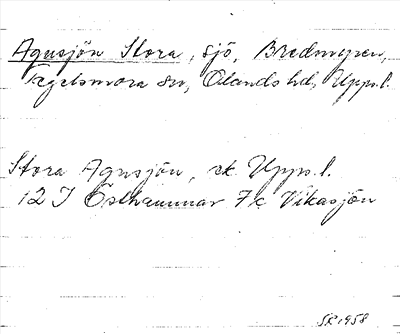 Agusjön Stora, sjö, Bredmyren,
Tegelsmora sn, Olands hd, Upps.l.
Stora Agusjön, ek Upps.l.
12 I Östhammar 7c Vikasjön
SR 1958